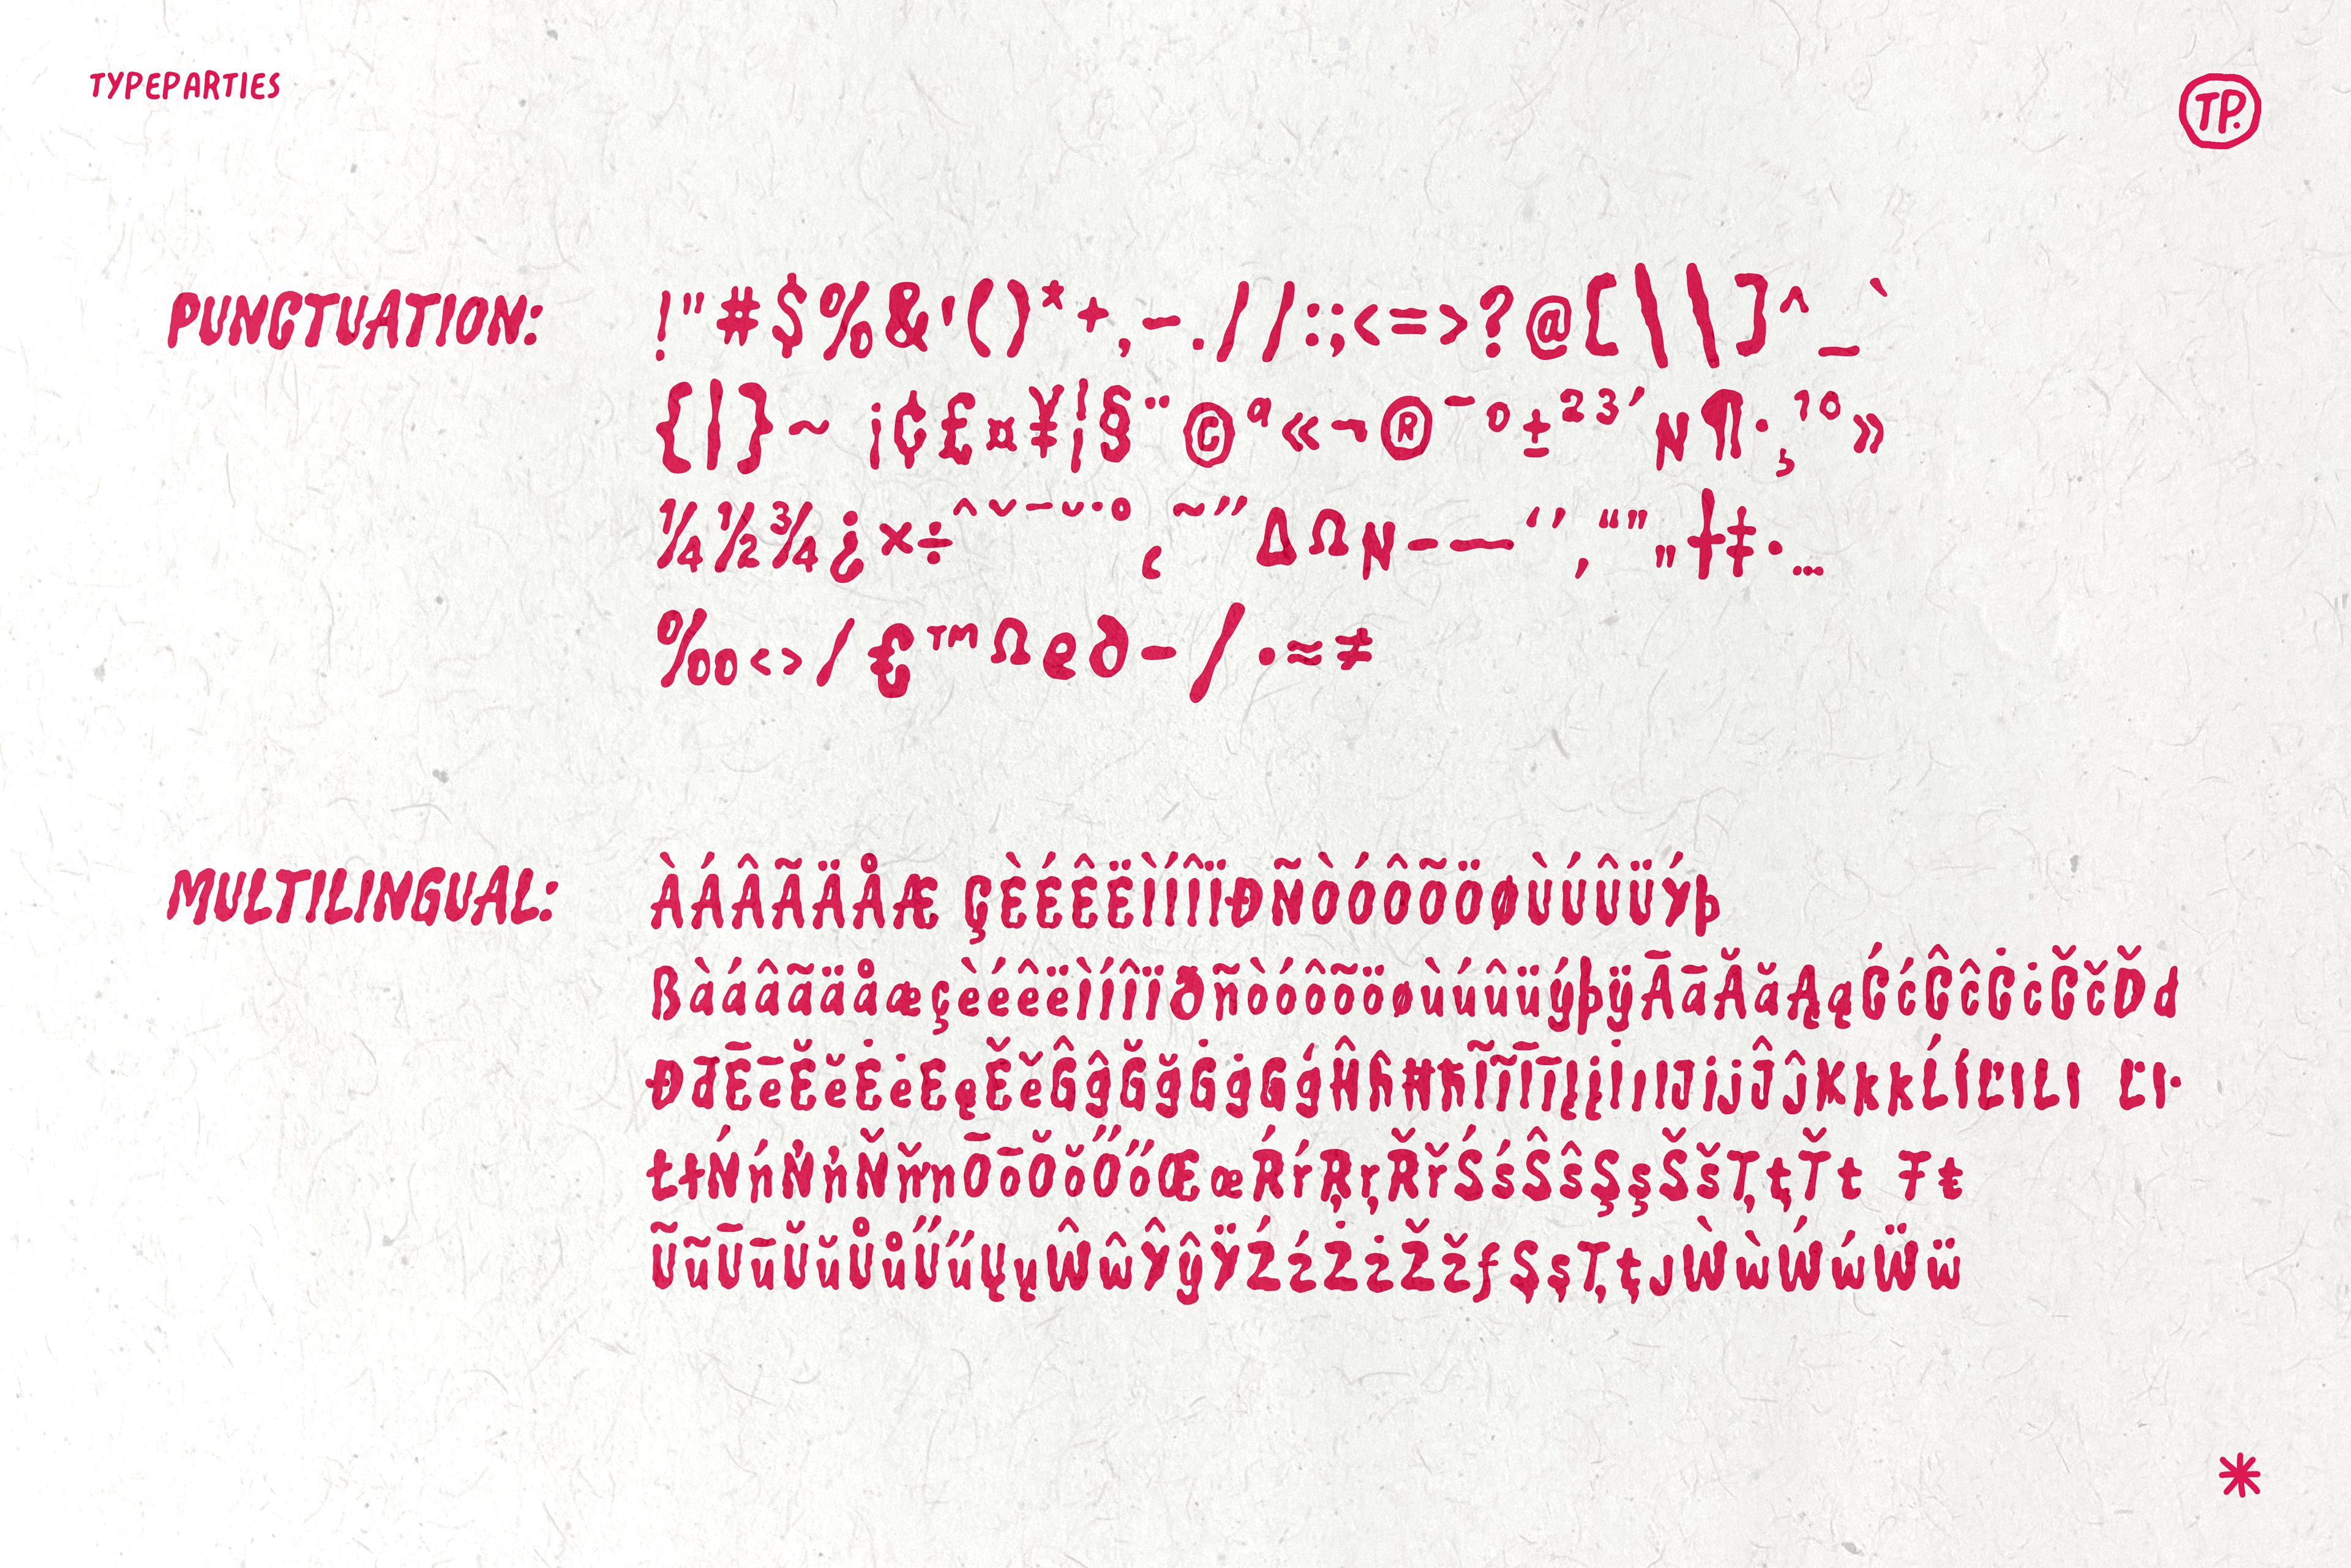 TYPEPARTIES
TP.
PUNCTUATION:
!"#$%&'()*+,-.//:;<=>?@[\\]^_`
{|}~ ¡¢£¤¥¦§¨©ª«¬®¯º±²³´µ¶·¸¹⁰»
¼½¾¿×÷ˆˇ¯˘˙˚ ˛ ˜˝ΔΩµ–—‘’‚“”„†‡•…
‰‹›/€™Ωe∂−/·≈≠
MULTILINGUAL:
ÀÁÂÃÄÅÆ ÇÈÉÊËÌÍÎÏÐÑÒÓÔÕÖØÙÚÛÜÝÞ
ßàáâãäåæçèéêëìíîïðñòóôõöøùúûüýþÿĀāĂăĄąĆćĈĉĊċČčĎď
ĐđĒēĔĕĖėĘęĚěĜĝĞğĠġĢģĤĥĦħĨĩĪīĮįİıĲĳĴĵĶķĸĹĺĽľĻļ Ŀŀ
ŁłŃńŅņŇňŉŌōŎŏŐőŒœŔŕŖŗŘřŚśŜŝŞşŠšŢţŤť Ŧŧ
ŨũŪūŬŭŮůŰűŲųŴŵŶŷŸŹźŻżŽžƒȘșȚțȷẀẁẂẃẄẅ